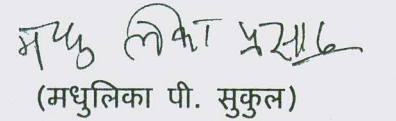 मधु लिका प्रसाद
(मधुलिका पी. सुकुल)